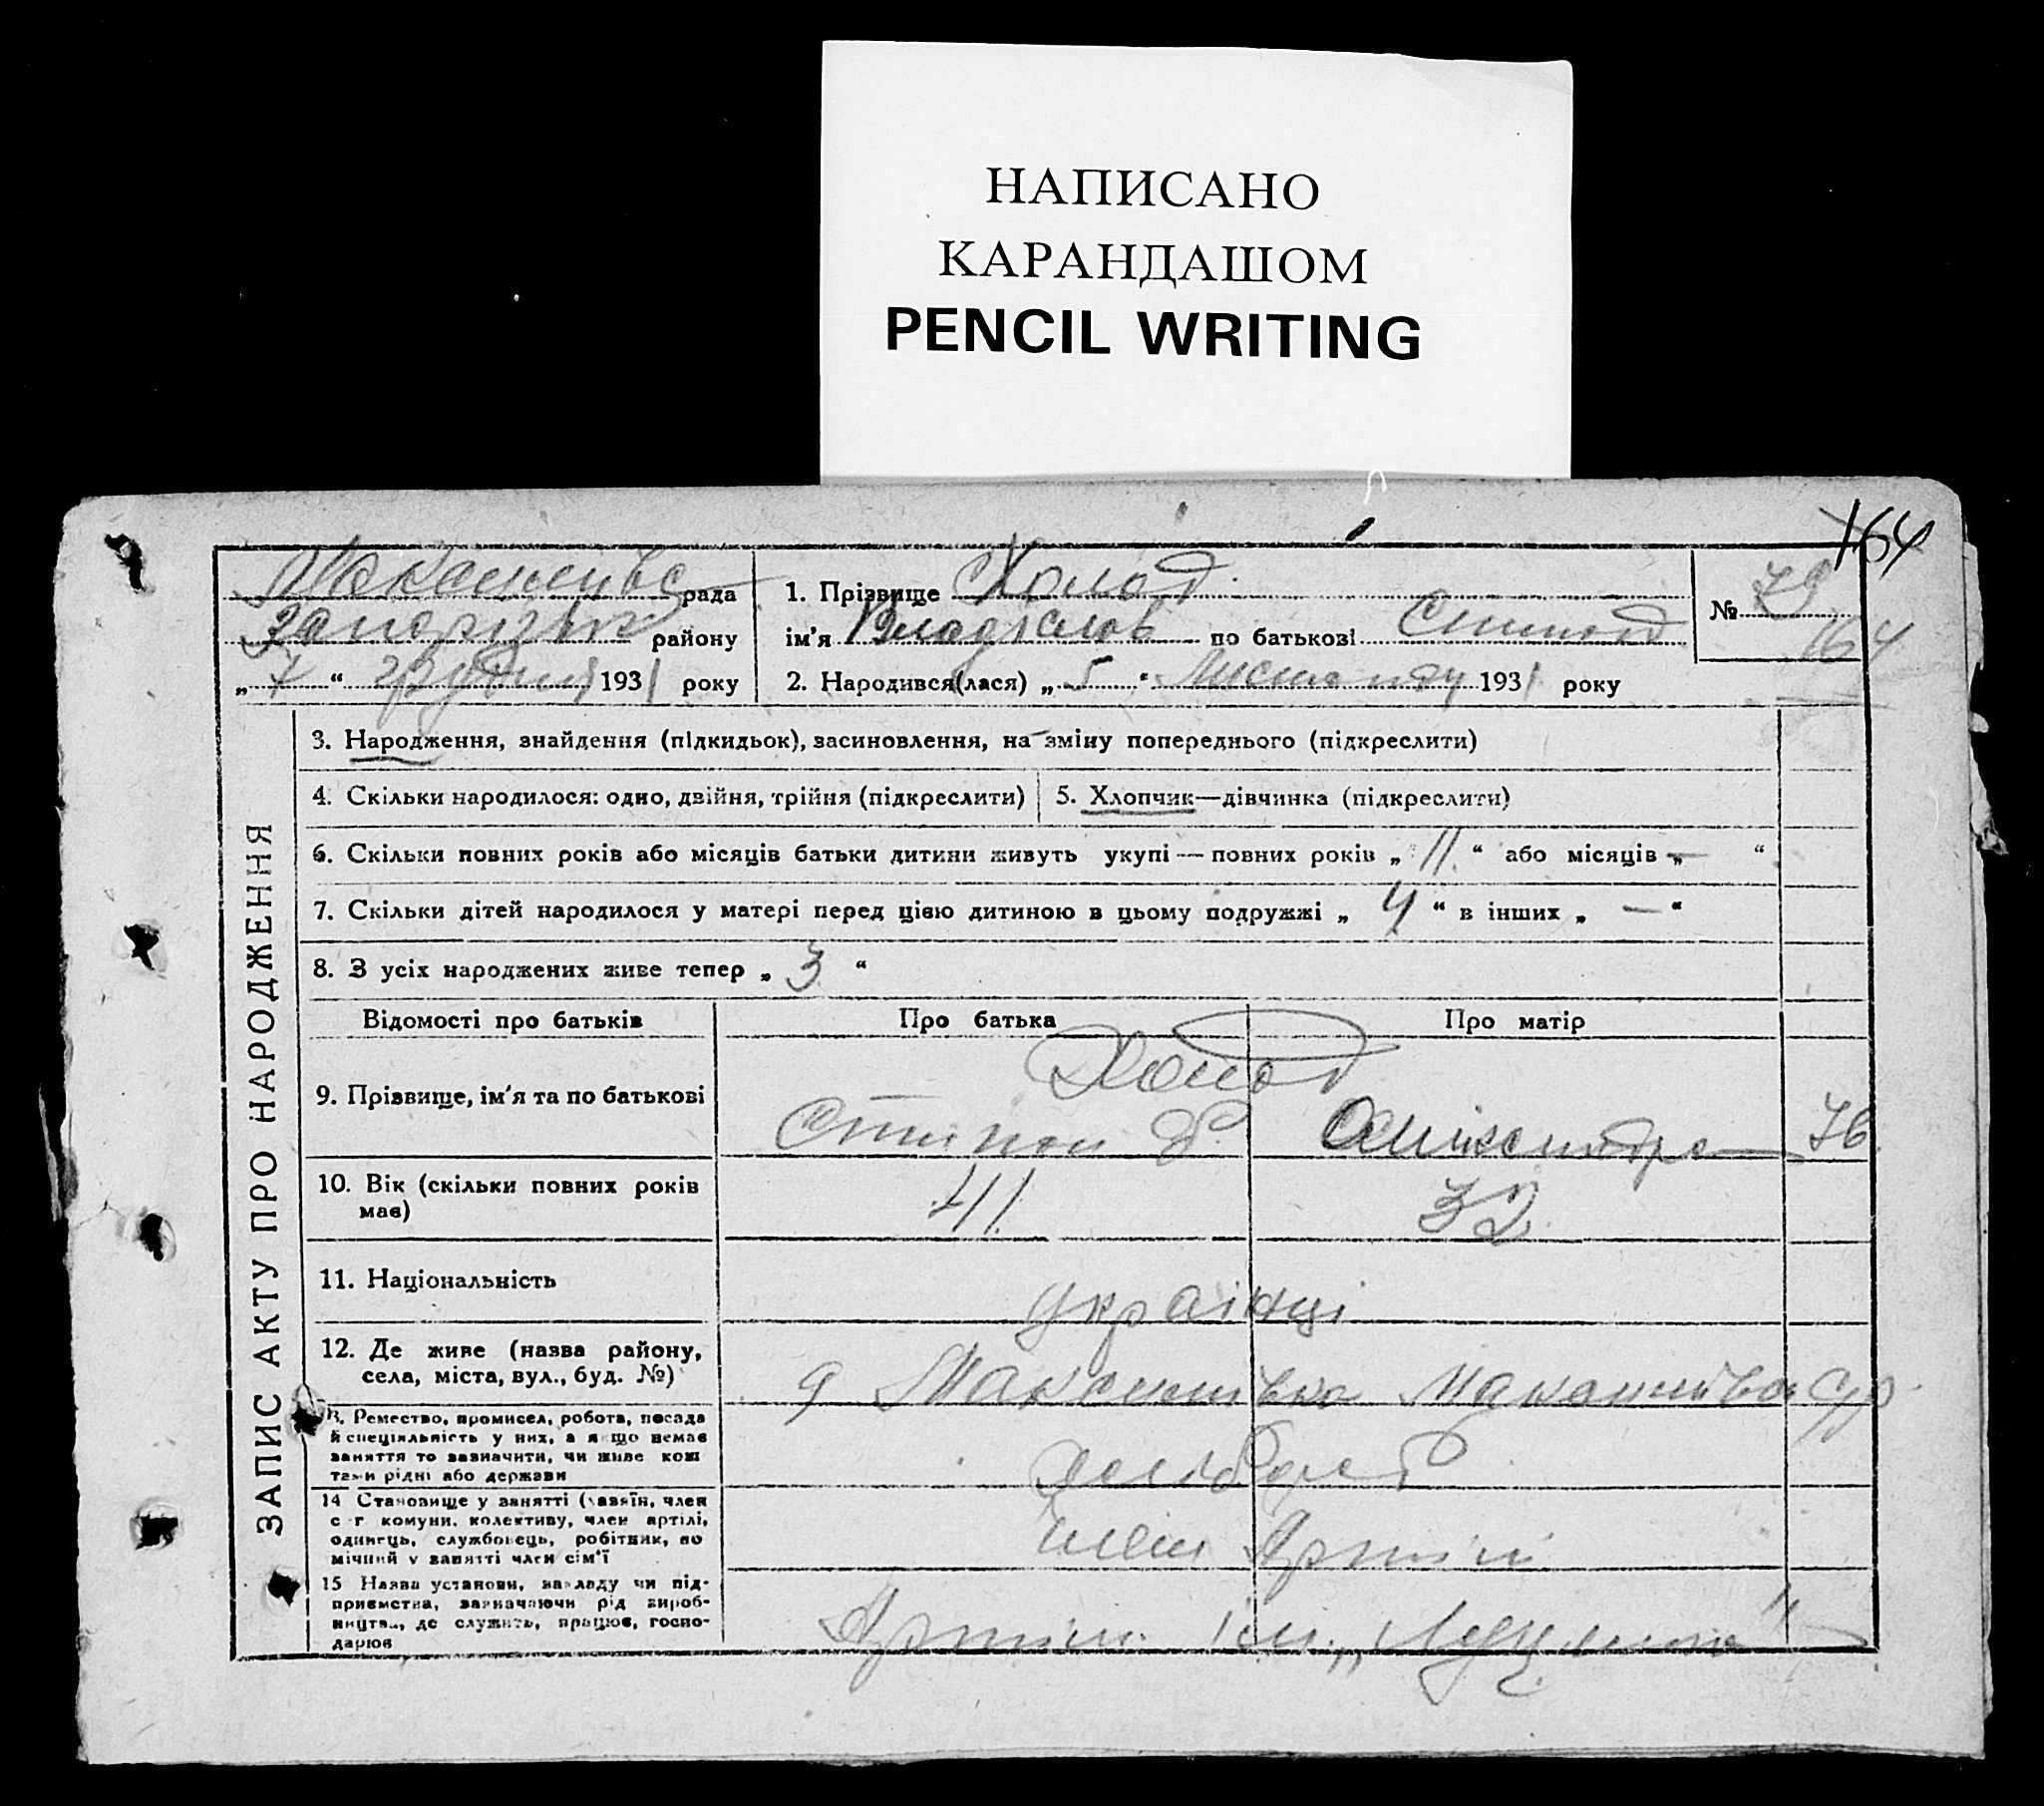 НАПИСАНО
КАРАНДАШОМ
PENCIL WRITING
164
рада
району
„ 7 “ грудня 1931 року
1. Прізвище Холод
ім'я по батькові
2. Народився(лася) „ 5 “ Листопаду 1931 року
№ 79
164
ЗАПИС АКТУ ПРО НАРОДЖЕННЯ
3. Народження, знайдення (підкидьок), засиновлення, на зміну попереднього (підкреслити)
4. Скільки народилося: одно, двійня, трійня (підкреслити)
5. Хлопчик—дівчинка (підкреслити)
6. Скільки повних років або місяців батьки дитини живуть укупі — повних років „ 11 “ або місяців „ — “
7. Скільки дітей народилося у матері перед цією дитиною в цьому подружжі „ 4 “ в інших „ — “
8. З усіх народжених живе тепер „ 3 “
Відомості про батьків
Про батька
Про матір
9. Прізвище, ім'я та по батькові
Холод
10. Вік (скільки повних років має)
41
32
11. Національність
українці
12. Де живе (назва району, села, міста, вул., буд. №)
13. Ремество, промисел, робота, посада й спеціяльність у них, а якщо немає заняття то зазначити, чи живе коштами рідні або держави
14 Становище у занятті (хазяїн, член с-г. комуни, колективу, член артілі, одинець, службовець, робітник, помічний у занятті член сім'ї
член Артілі
15 Назва установи, закладу чи підприємства, зазначаючи рід виробництва, де служить, працює, господарює
Артіль ім.